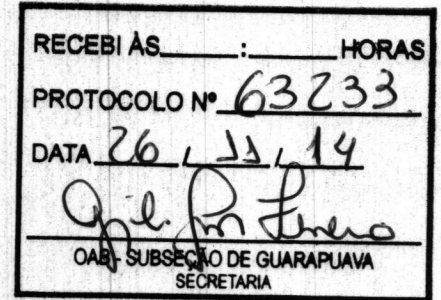 RECEBI ÀS ____:____ HORAS
PROTOCOLO Nº 63233
DATA 26 / 11 / 14
OAB - SUBSEÇÃO DE GUARAPUAVA
SECRETARIA